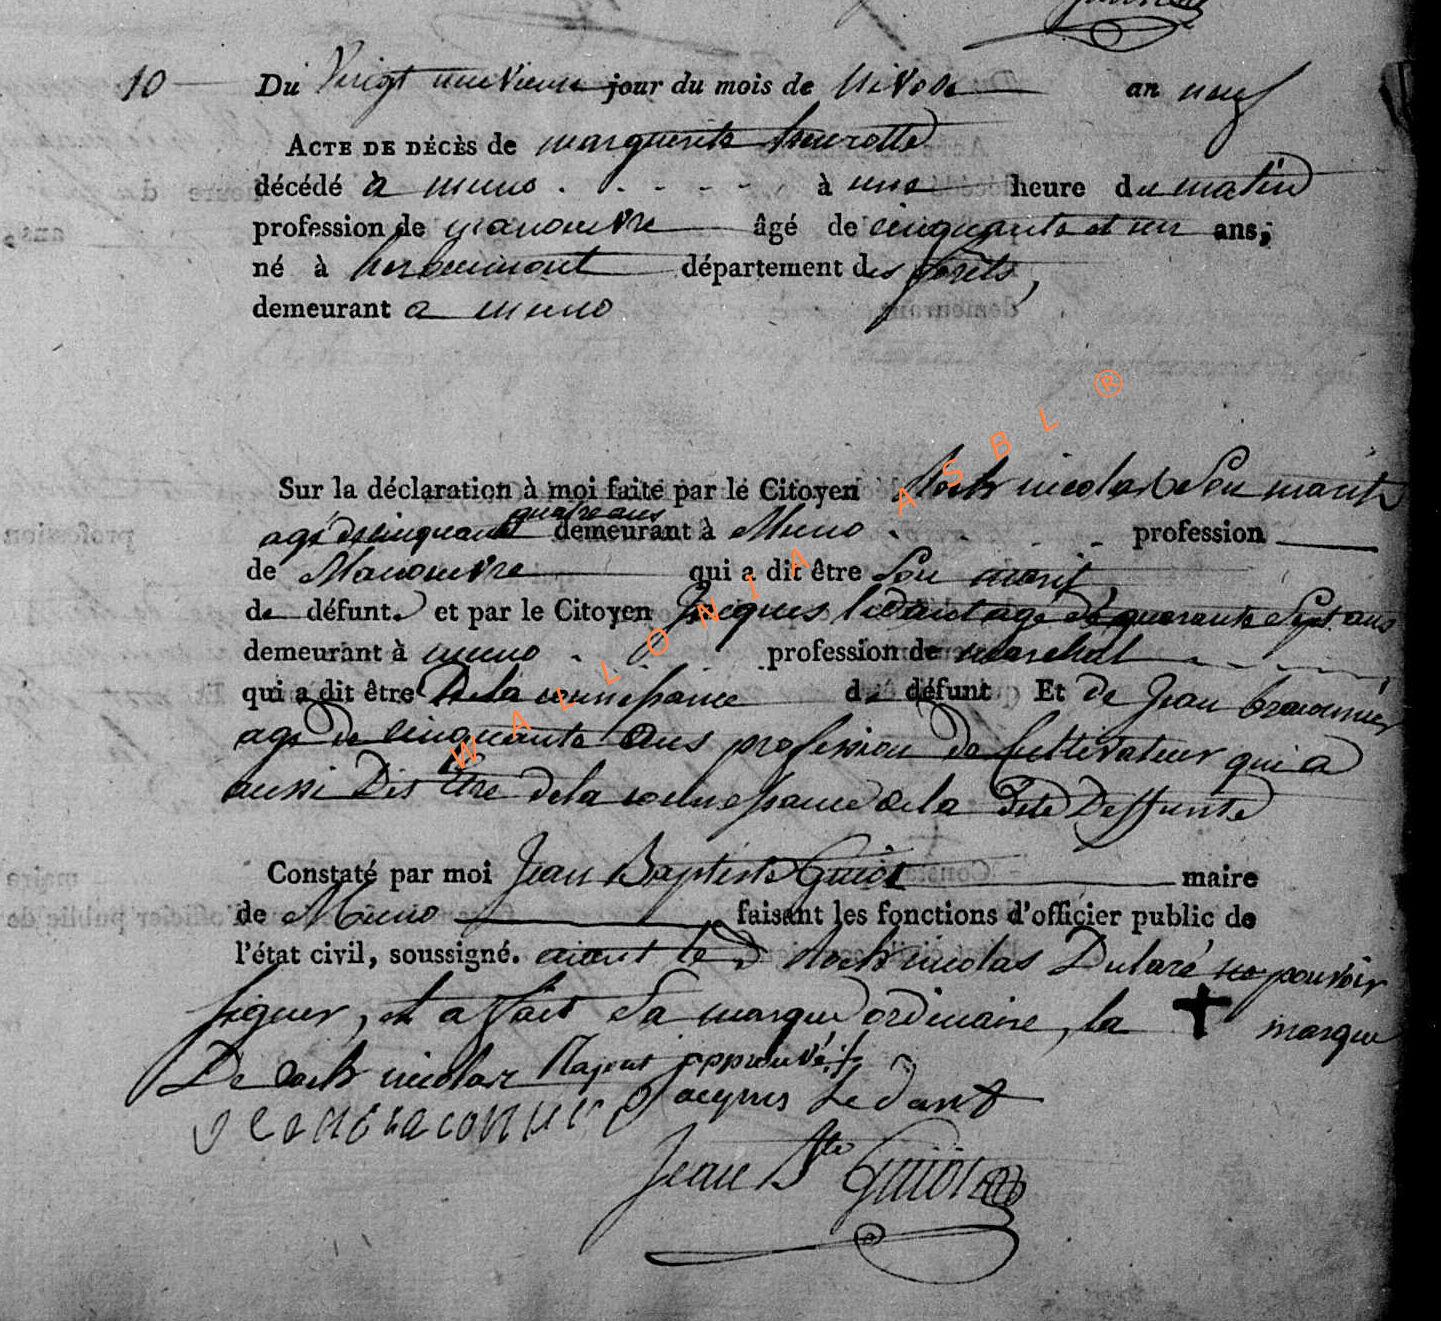 10 Du Vingt unevieme jour du mois de Nivose an neuf
ACTE DE DÉCÈS de marguerite heurotte
décédé à muno . . - - - - à une heure du matin
profession de manouvre âgé de cinquante et un ans,
né à herbeumont département des forêts,
demeurant a muno
Sur la déclaration à moi faite par le Citoyen Roch nicolas Son marit
quatre ans
agé de cinquante demeurant à Muno . - - - profession
de Manouvre qui a dit être Son marit
de défunt. et par le Citoyen Jacques ledant agé de quarante Sept ans
demeurant à muno . . . profession de marechal
qui a dit être De la connessance de défunt Et de Jean
agé de cinquante ans profession de Cultivateur qui a
aussi Dit Etre de la connessance de la dite Deffunte
Constaté par moi Jean Baptiste Guiot maire
de Muno faisant les fonctions d'officier public de
l'état civil, soussigné. aiant le d Roch nicolas Dularé ne pouvoir
signer, et a fait Sa marque ordinaire, la + marque
De roch nicolas Rajout approuvé
Jacques Ledant
Jean Bte Guiot
WALLONIA ASBL ®